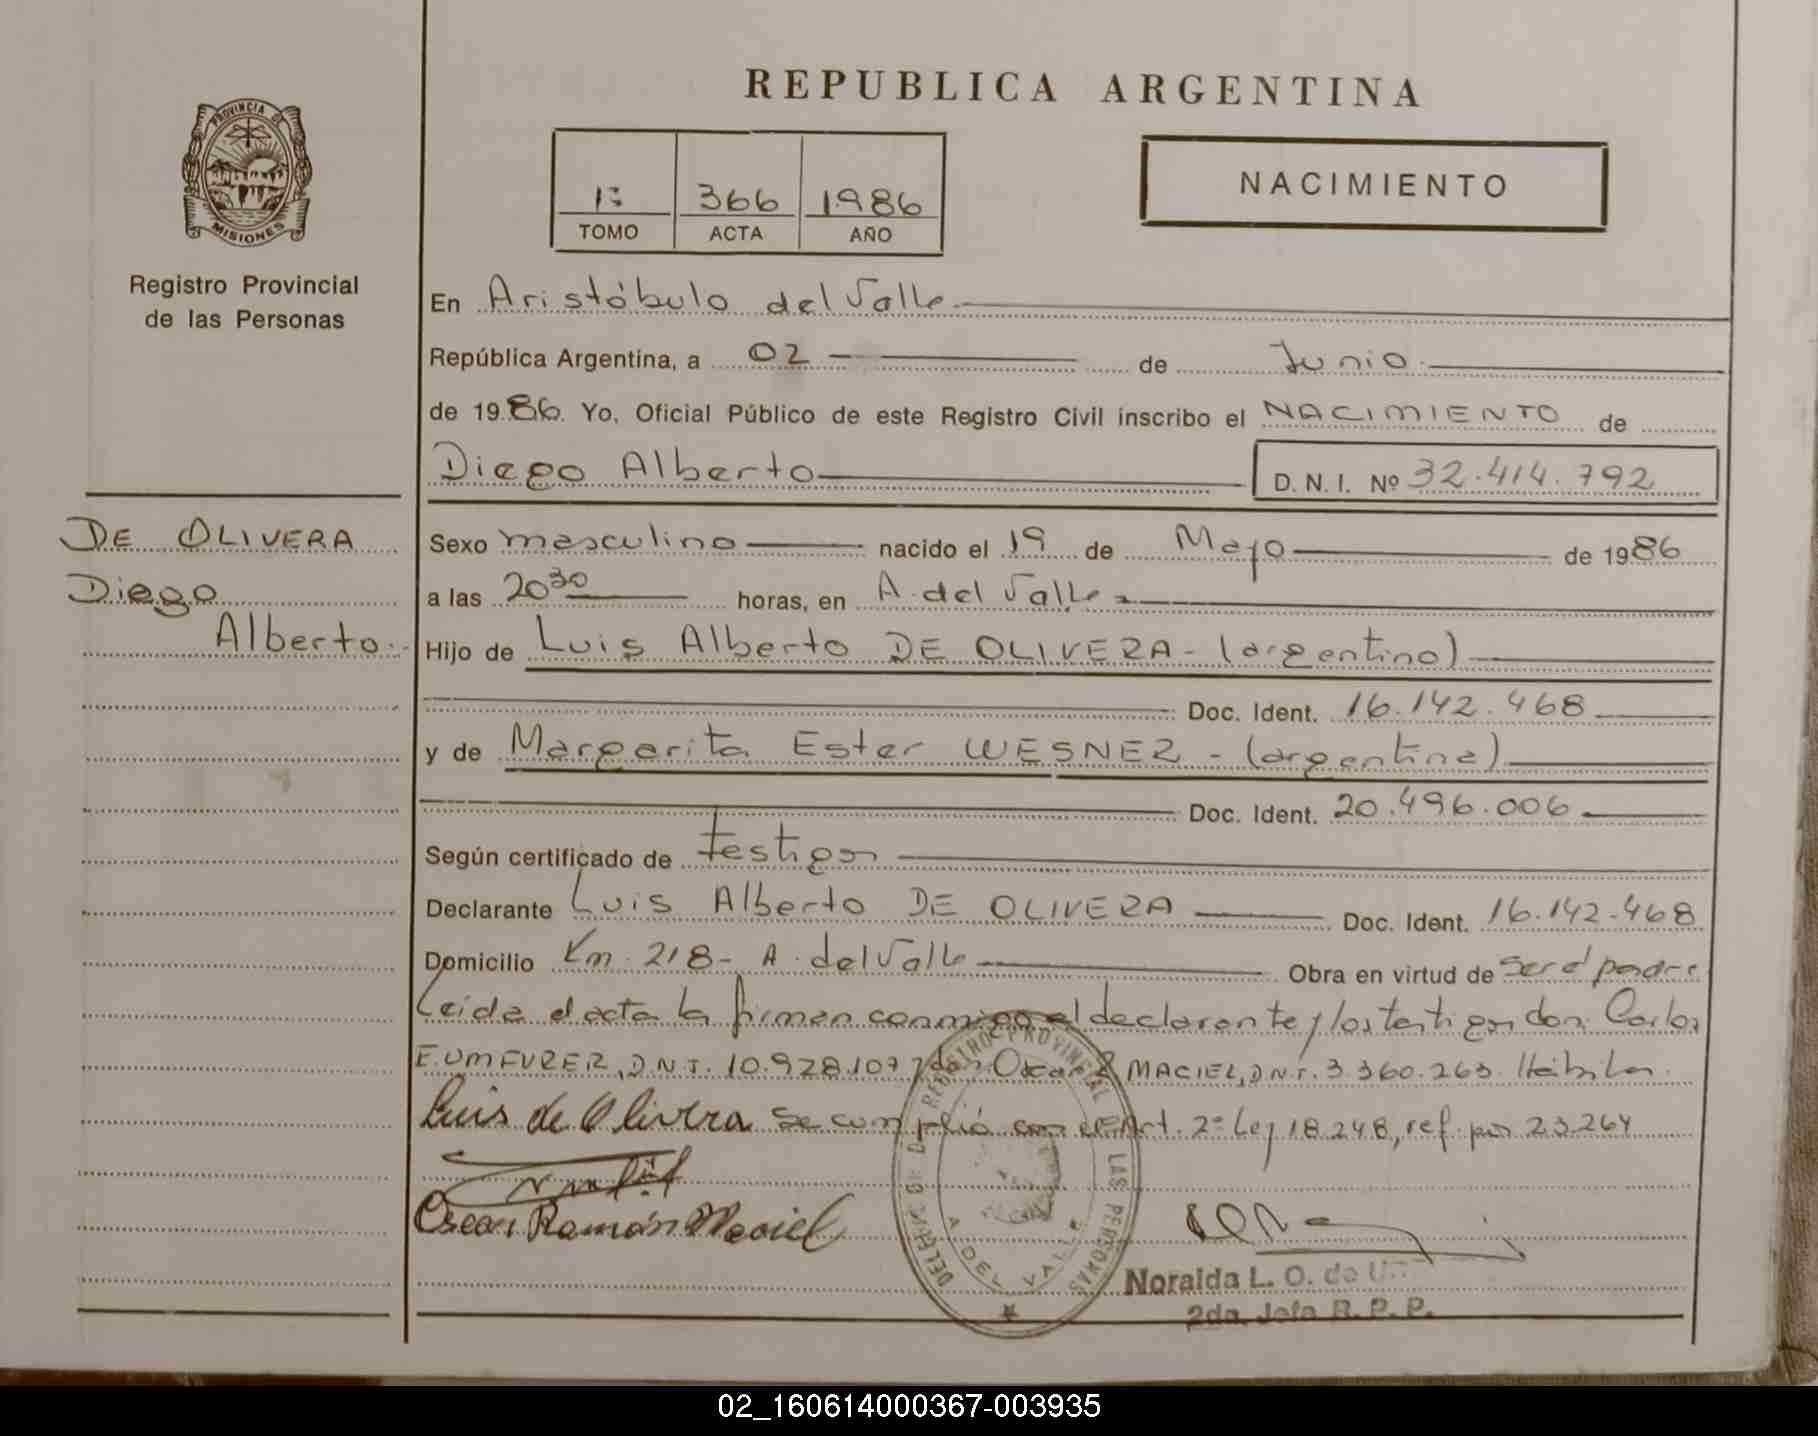 REPUBLICA ARGENTINA
PROVINCIA DE
MISIONES
Registro Provincial
de las Personas
1: 366 1986
TOMO ACTA AÑO
NACIMIENTO
En Aristóbulo del Valle
República Argentina, a 02 de Junio
de 1986. Yo, Oficial Público de este Registro Civil inscribo el NACIMIENTO de
Diego Alberto D. N. I. Nº 32.414.792
DE OLIVERA
Diego
Alberto.-
Sexo masculino nacido el 19 de Mayo de 1986
a las 20 30 horas, en A. del Valle
Hijo de Luis Alberto DE OLIVERA - (argentino)
Doc. Ident. 16.142.468
y de Margarita Ester WESNER - (argentina)
Doc. Ident. 20.496.006
Según certificado de testigos
Declarante Luis Alberto DE OLIVERA Doc. Ident. 16.142.468
Domicilio Km. 218 - A. del Valle Obra en virtud de ser el padre
Leida el acta la firman conmigo el declarante y los testigos don Carlos
E. UMFURER, D.N.I. 10.928.107 y don Oscar R MACIEL, D.N.I. 3.360.263. Hábiles.
Luis de Olivera se cumplió con el Art. 2º Ley 18.248, ref. por 23.264
Oscar Ramón Maciel
DE REGISTRO PROVINCIAL DE LAS PERSONAS
A. DEL VALLE
Noralda L. O. de
2da. Jefa R. P. P.
02_160614000367-003935